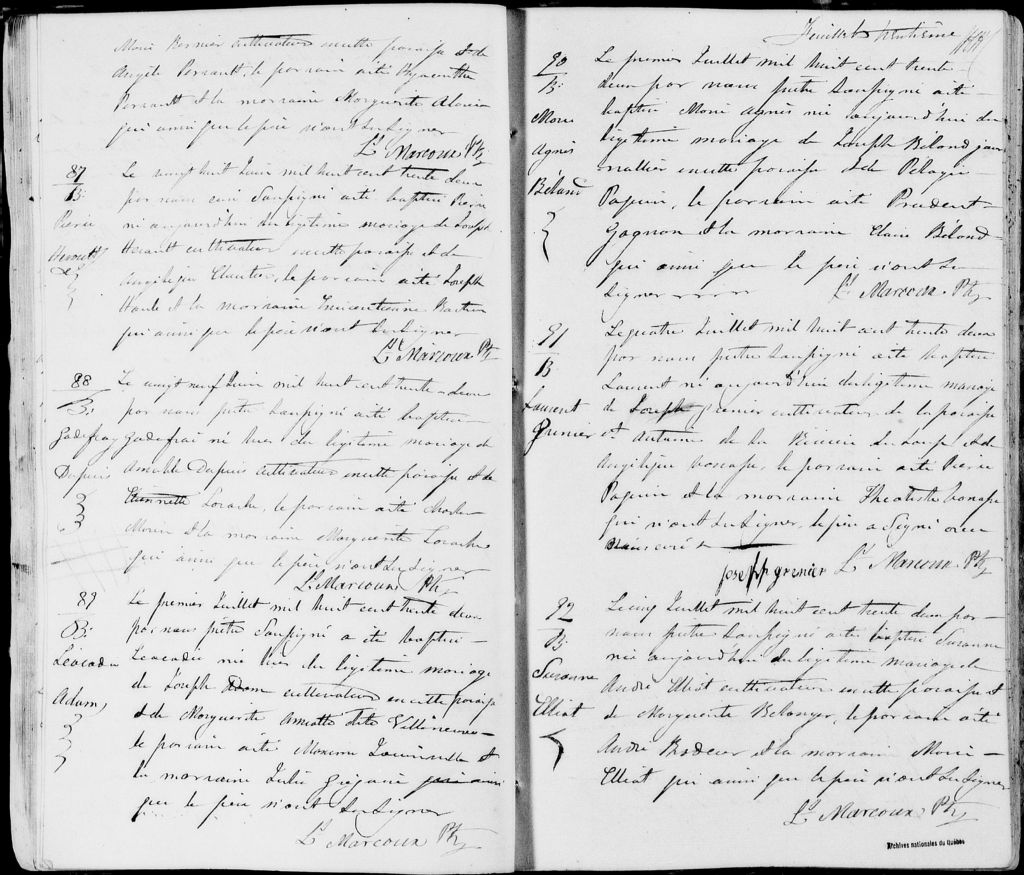 Marie Bernier cultivateur en cette paroisse et de
Angèle Perrault, le parrain a été Hyacinthe
Perrault et la marraine Marguerite Alarie
qui ainsi que le père n'ont su signer
Lˢ Marcoux Ptre
87
B:
Pierre
Herault
Le vingt huit Juin mil huit cent trente deux
par nous curé soussigné a été baptisé Pierre
né aujourd'hui du légitime mariage de Joseph
Herault cultivateur en cette paroisse et de
Angélique Cloutier, le parrain a été Joseph
Houle et la marraine
qui ainsi que le père n'ont su signer
Lˢ Marcoux Ptre
88
B:
Godefroy
Dupuis
Le vingt neuf Juin mil huit cent trente-deux
par nous prêtre soussigné a été baptisé
Godefrai né hier du légitime mariage de
Amable Dupuis cultivateur en cette paroisse et de
le parrain a été
Morin et la marraine Marguerite
qui ainsi que le père n'ont su signer
Lˢ Marcoux Ptre
89
B:
Léocadie
Adam
Le premier Juillet mil huit cent trente deux
par nous prêtre soussigné a été baptisé
Leocadie née hier du légitime mariage
de Joseph Adam cultivateur en cette paroisse
et de Marguerite Amiotte dite Villeneuve
le parrain a été Maxime et
la marraine Julie Grégoire qui ainsi
que le père n'ont su signer
Lˢ Marcoux Ptre
Feuillet trentième
90
B:
Marie
Agnès
Béland
Le premier Juillet mil huit cent trente
deux par nous prêtre soussigné a été
baptisé Marie Agnès née aujourd'hui du
légitime mariage de Joseph Béland jour
nallier en cette paroisse et de Pélagie
Paquin, le parrain a été Prudent
Gagnon et la marraine Claire Béland
qui ainsi que le père n'ont su
signer
Lˢ Marcoux Ptre
91
B
Laurent
Grenier
Le quatre Juillet mil huit cent trente deux
par nous prêtre soussigné a été baptisé
Laurent né aujourd'hui du légitime mariage
de Joseph grenier cultivateur de la paroisse
St Antoine de la Rivière du Loup et de
Angélique , le parrain a été Pierre
Paquin et la marraine Théotiste
qui n'ont su signer, le père a signé avec
nous
joseph grenier Lˢ Marcoux Ptre
92
B:
Suzanne
Elliot
Le cinq Juillet mil huit cent trente deux par
nous prêtre soussigné a été baptisé Suzanne
née aujourd'hui du légitime mariage de
André Elliot cultivateur en cette paroisse et
de Marguerite Bélanger, le parrain a été
André et la marraine Marie
Elliot qui ainsi que le père n'ont su signer
Lˢ Marcoux Ptre
Archives nationales du Québec